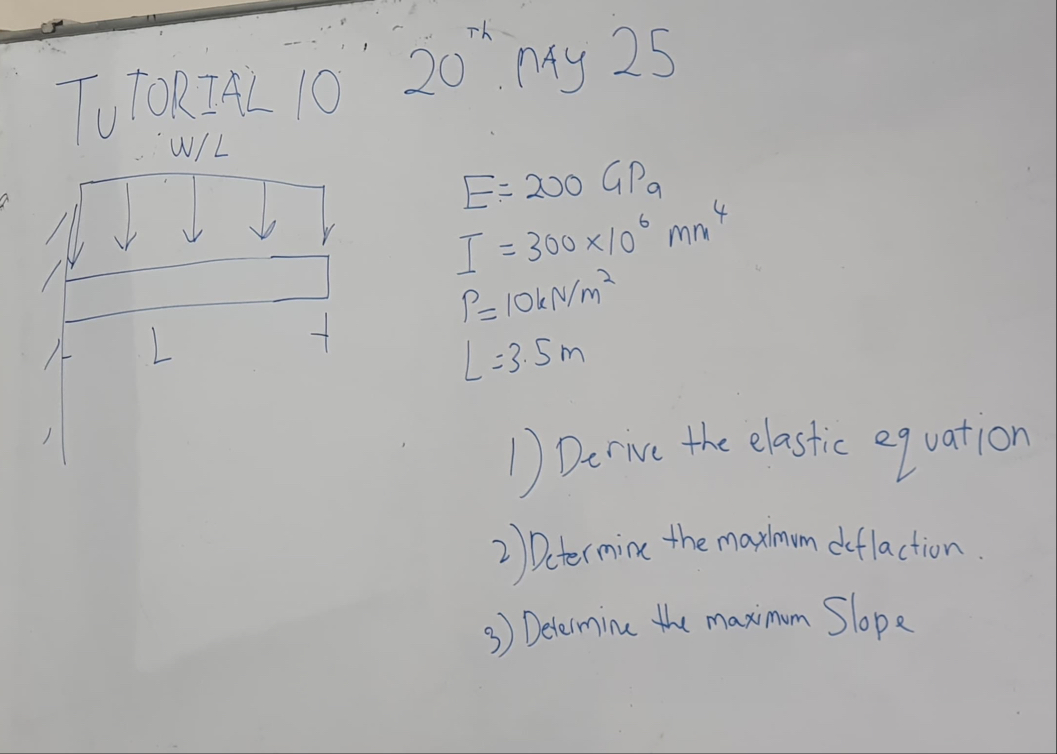 TUTORIAL 10 20th. MAY 25
W/L
E = 200 GPa
I = 300 × 10⁶ mm⁴
P = 10kN/m²
L = 3.5m
L
1) Derive the elastic equation
2) Determine the maximum deflaction.
3) Determine the maximum Slope